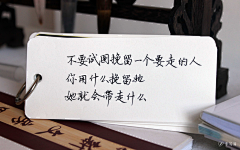 不要试图挽留一个要走的人
你用什么挽留她
她就会带走什么